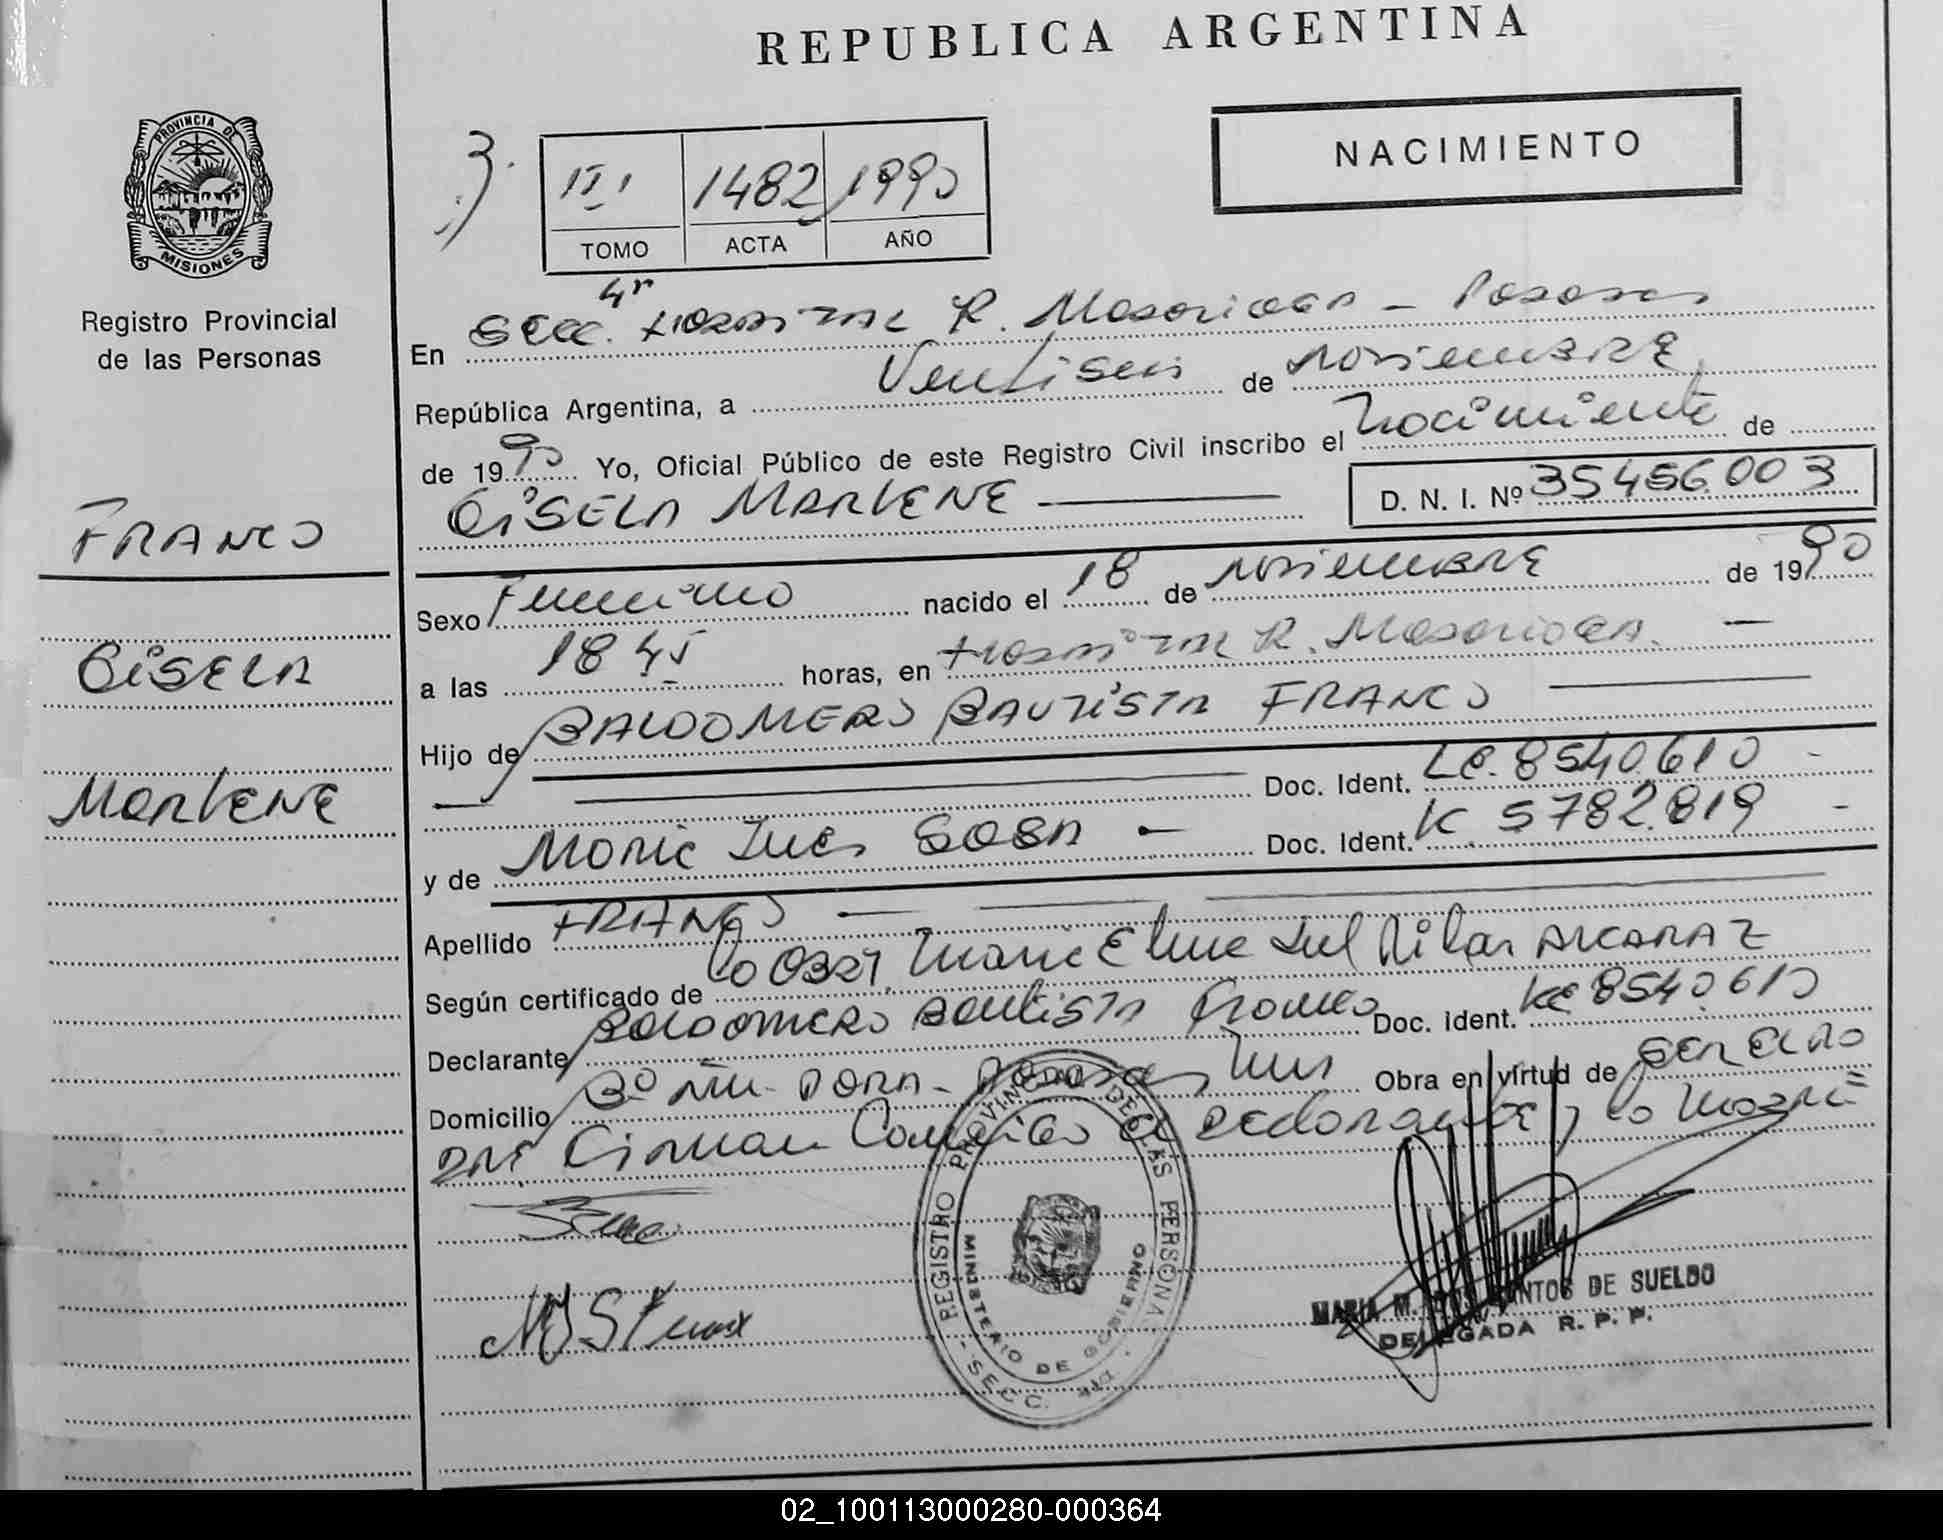 REPUBLICA ARGENTINA
PROVINCIA DE
MISIONES
Registro Provincial
de las Personas
3.
III
1482
1990
TOMO
ACTA
AÑO
NACIMIENTO
En Secc. 4ª Hospital R. Madariaga - Posadas
República Argentina, a Ventiseis de Noviembre
de 1990 Yo, Oficial Público de este Registro Civil inscribo el Nacimiento de
GISELA MARLENE D. N. I. Nº 35456.003
FRANCO
GISELA
MARLENE
Sexo Femenino nacido el 18 de Noviembre de 1990
a las 18 45 horas, en Hospital R. Madariaga. —
Hijo de BALDOMERO BAUTISTA FRANCO
Doc. Ident. LE. 8540.610 -
y de Maria Ines SOSA — Doc. Ident. 5782.819 -
Apellido FRANCO
Según certificado de la Obst. Maria del Pilar ALCARAZ
Declarante Baldomero Bautista Franco Doc. ident. LE 8540.610
Domicilio Obra en virtud de ser el PA=
DRE Firman Conmigo el declarante y la Madre
REGISTRO PROVINCIAL DE LAS PERSONAS
MINISTERIO DE GOBIERNO
- SECC. 4ta -
MARIA M. DOS SANTOS DE SUELDO
DELEGADA R. P. P.
02_100113000280-000364